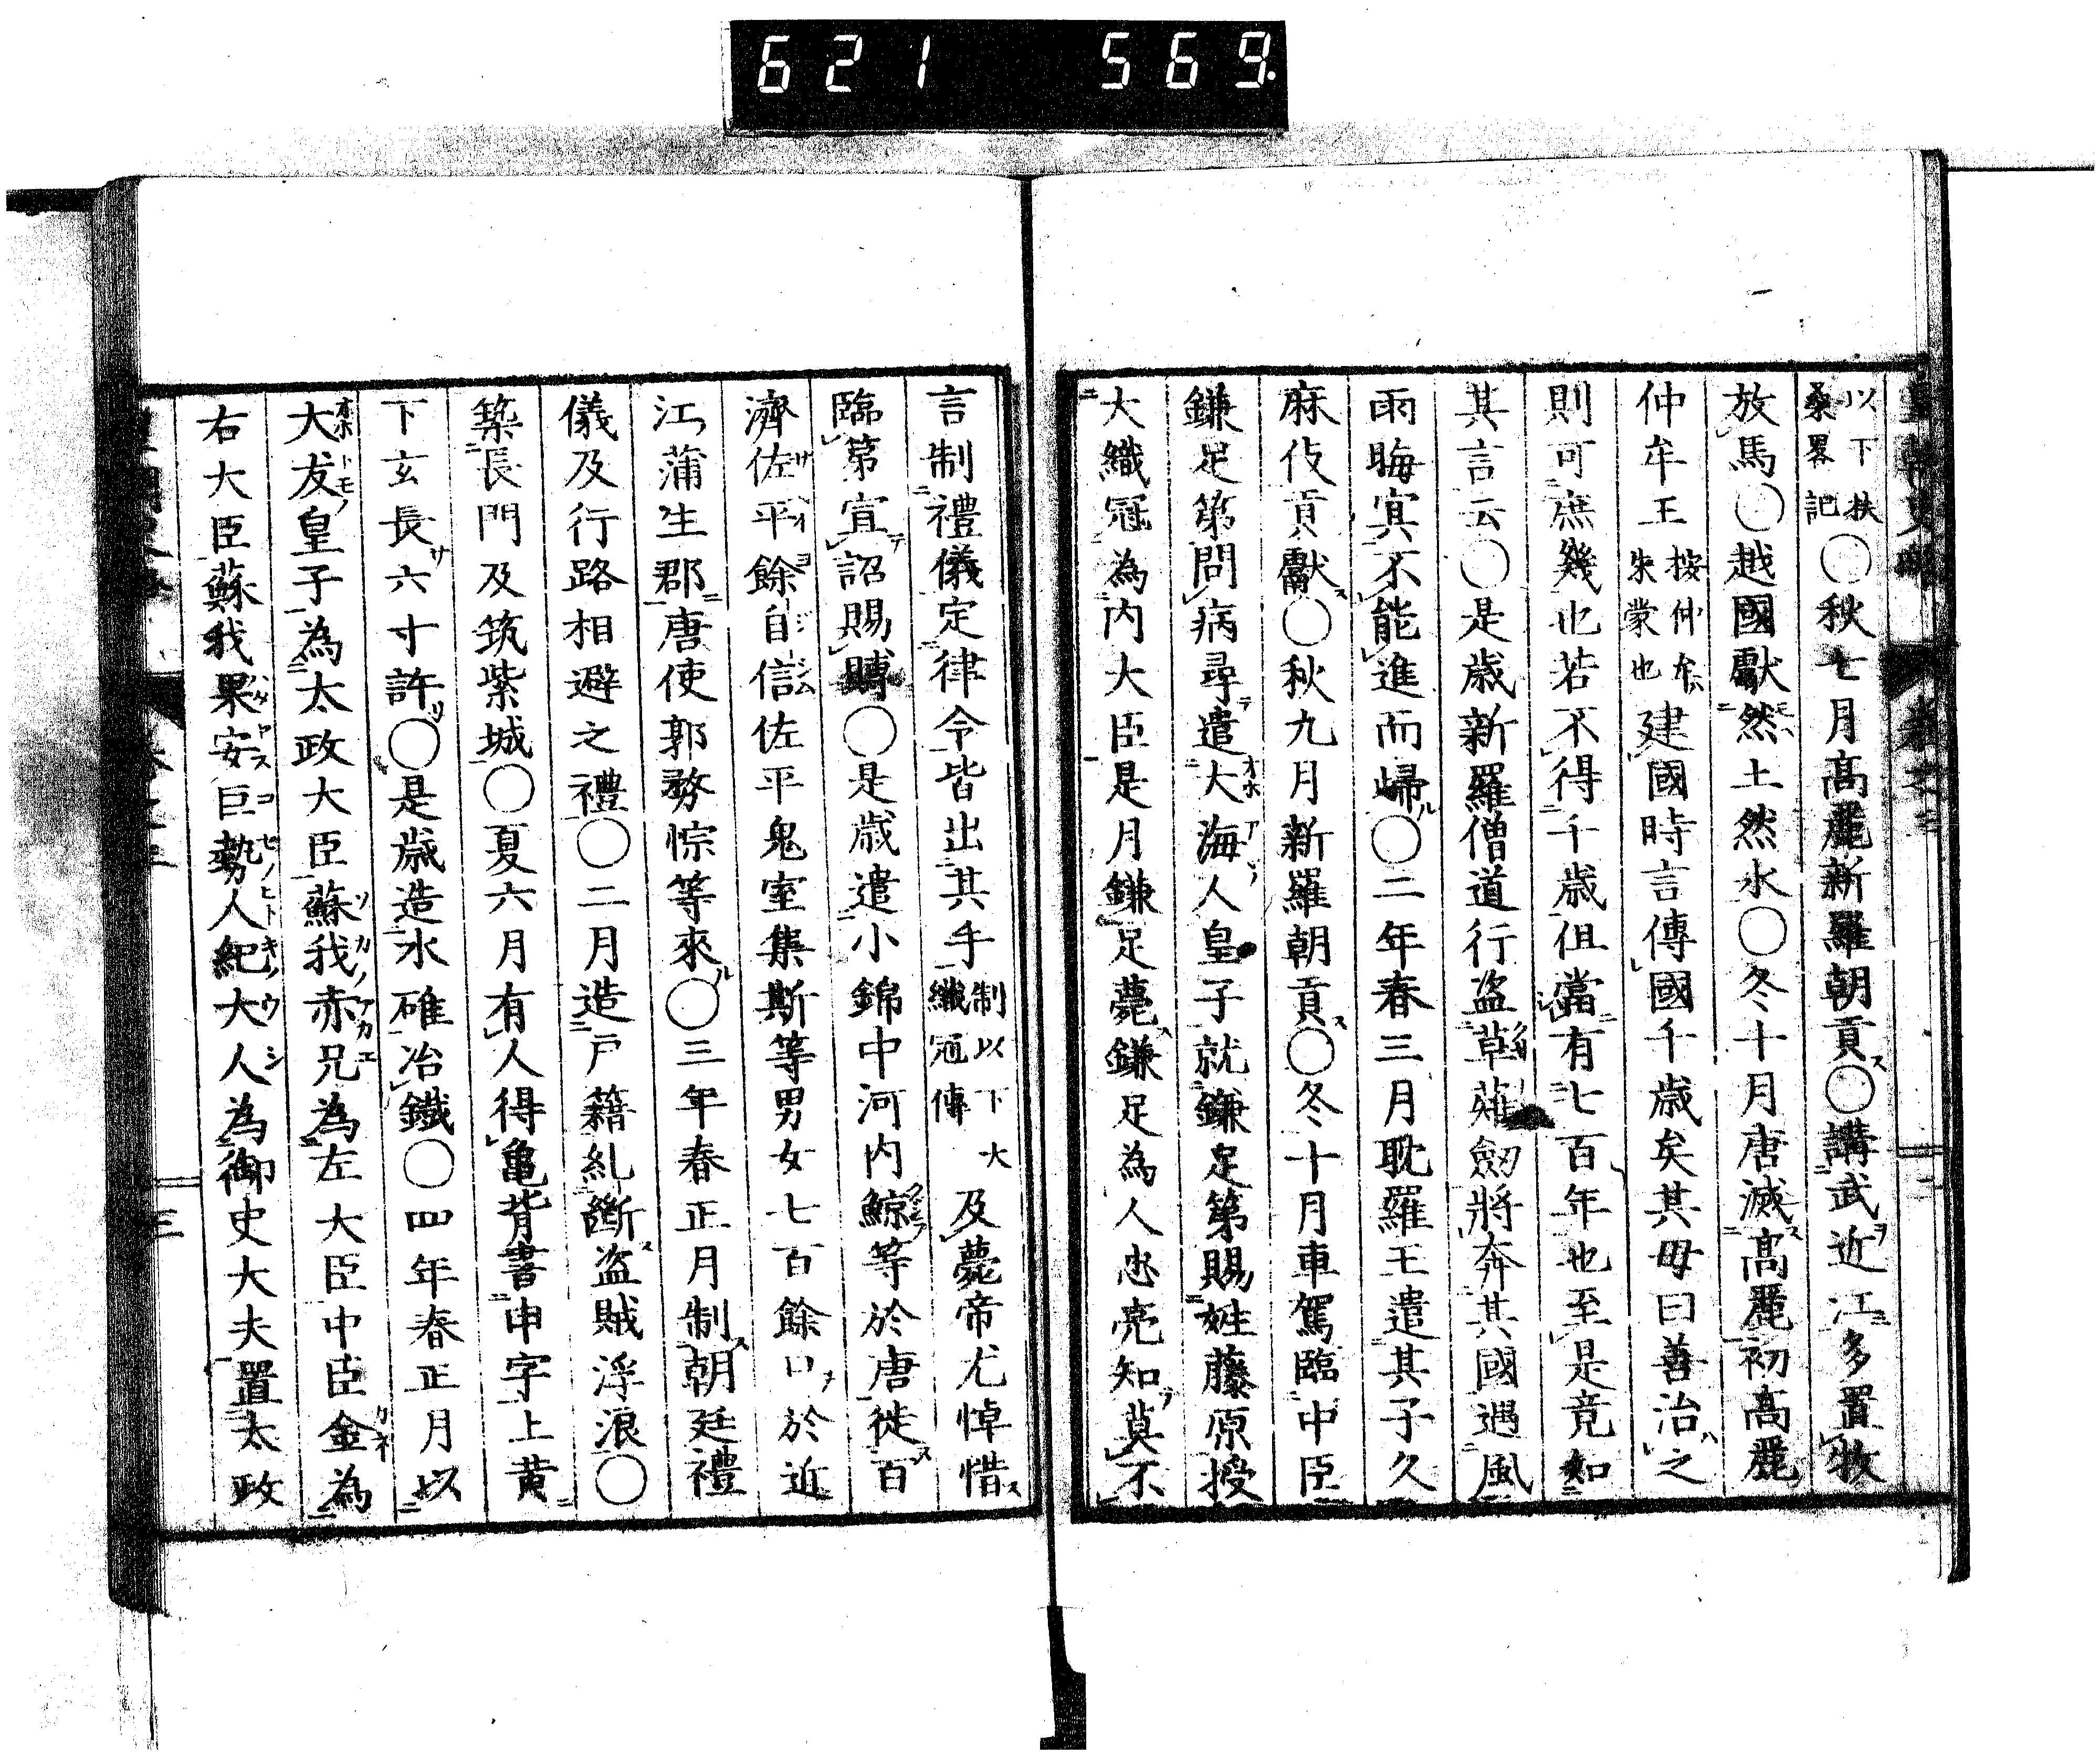 621 569.
以下扶
桑畧記
〇秋七月高麗新羅朝貢〇講武近江多置牧
放馬〇越國獻然土然水〇冬十月唐滅高麗初高麗
仲牟王
按仲牟
朱蒙也
建國時言傳國千歳矣其母曰善治之
則可庶幾也若不得千歳但當有七百年也至是竟如
其言云〇是歳新羅僧道行盗草薙劔將奔其國遇風
雨晦冥不能進而歸〇二年春三月耽羅王遣其子久
麻伎貢獻〇秋九月新羅朝貢〇冬十月車駕臨中臣
鎌足第問病尋遣大海人皇子就鎌足第賜姓藤原授
大織冠為内大臣是月鎌足薨鎌足為人忠亮知莫不
言制禮儀定律令皆出其手
制以下大
織冠傳
及薨帝尤悼惜
臨第宣詔賜賻〇是歳遣小錦中河内鯨等於唐徙百
濟佐平餘自信佐平鬼室集斯等男女七百餘口於近
江蒲生郡唐使郭務悰等來〇三年春正月制朝廷禮
儀及行路相避之禮〇二月造戸籍糺斷盗賊浮浪〇
築長門及筑紫城〇夏六月有人得亀背書申字上黄
下玄長六寸許〇是歳造水碓冶鐵〇四年春正月以
大友皇子為太政大臣蘇我赤兄為左大臣中臣金為
右大臣蘇我果安巨勢人紀大人為御史大夫置太政
三